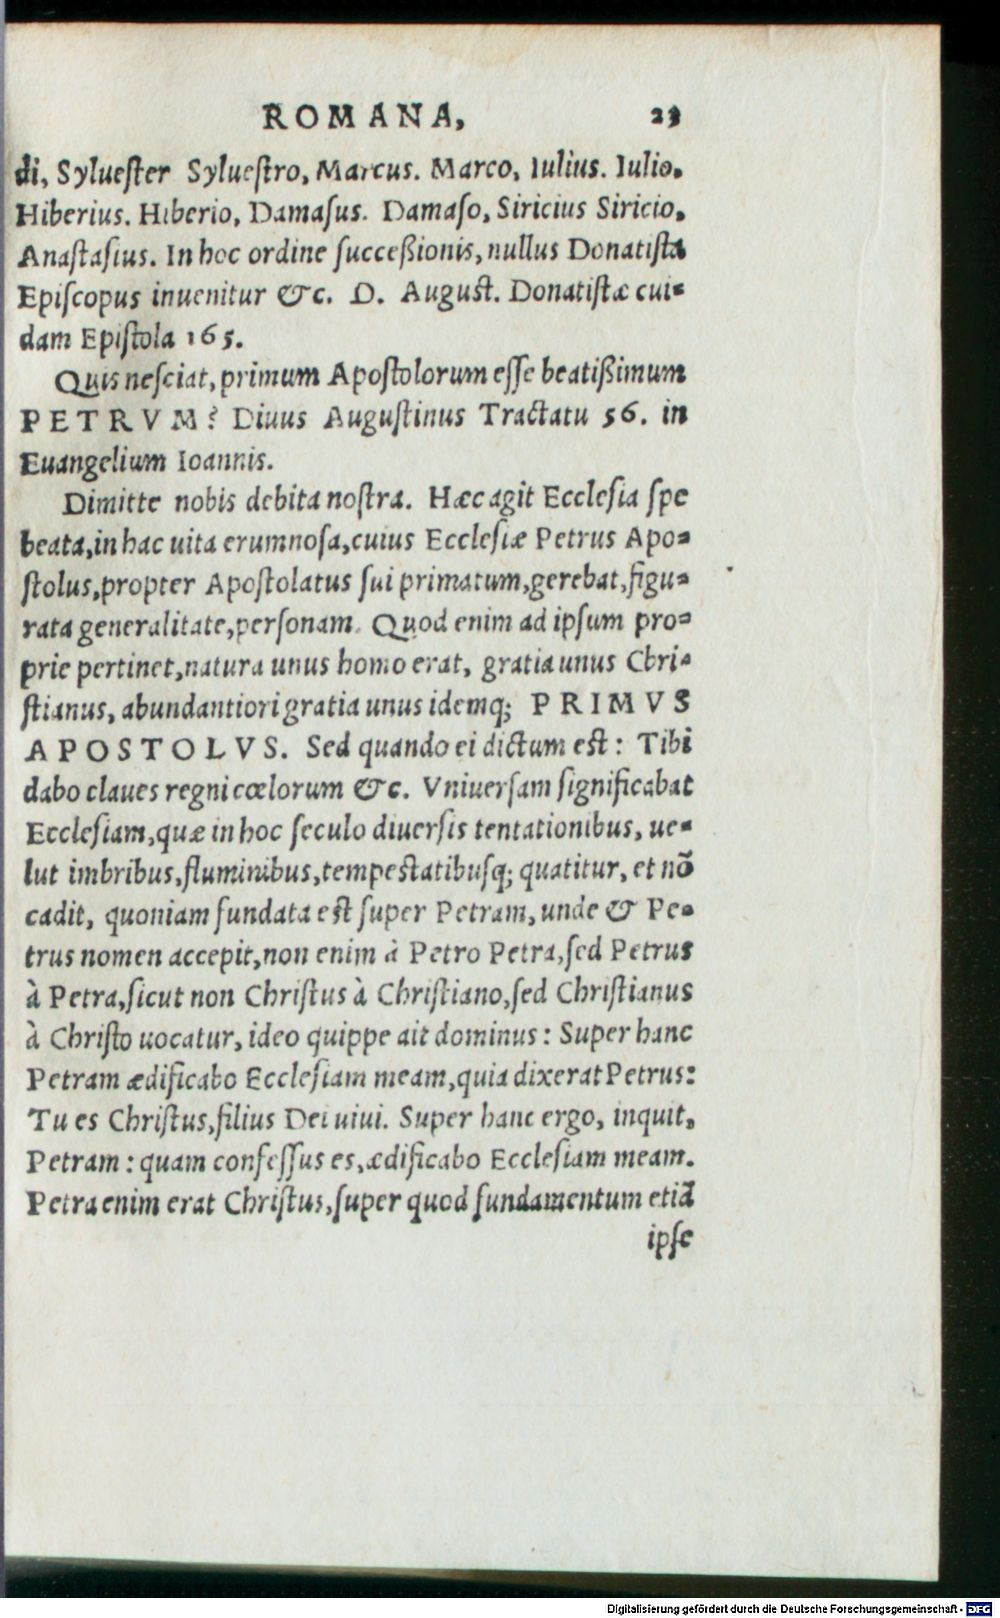 ROMANA, 23
di, Sylueſter Sylueſtro, Marcus. Marco, Iulius. Iulio.
Hiberius. Hiberio, Damaſus. Damaſo, Siricius Siricio,
Anaſtaſius. In hoc ordine ſucceßionis, nullus Donatiſta
Epiſcopus inuenitur &c. D. Auguſt. Donatiſtæ cui-
dam Epiſtola 165.
Quis neſciat, primum Apoſtolorum eſſe beatißimum
PETRVM? Diuus Auguſtinus Tractatu 56. in
Euangelium Ioannis.
Dimitte nobis debita noſtra. Hæc agit Eccleſia ſpe
beata, in hac uita erumnoſa, cuius Eccleſiæ Petrus Apo-
ſtolus, propter Apoſtolatus ſui primatum, gerebat, figu-
rata generalitate, perſonam. Quod enim ad ipſum pro-
prie pertinet, natura unus homo erat, gratia unus Chri-
ſtianus, abundantiori gratia unus idemq; PRIMVS
APOSTOLVS. Sed quando ei dictum eſt: Tibi
dabo claues regni cœlorum &c. Vniuerſam ſignificabat
Eccleſiam, quæ in hoc ſeculo diuerſis tentationibus, ue-
lut imbribus, fluminibus, tempeſtatibuſq; quatitur, et nõ
cadit, quoniam fundata eſt ſuper Petram, unde & Pe-
trus nomen accepit, non enim à Petro Petra, ſed Petrus
à Petra, ſicut non Chriſtus à Chriſtiano, ſed Chriſtianus
à Chriſto uocatur, ideo quippe ait dominus: Super hanc
Petram ædificabo Eccleſiam meam, quia dixerat Petrus:
Tu es Chriſtus, filius Dei uiui. Super hanc ergo, inquit,
Petram: quam confeſſus es, ædificabo Eccleſiam meam.
Petra enim erat Chriſtus, ſuper quod fundamentum etiã
ipſe
Digitalisierung gefördert durch die Deutsche Forschungsgemeinschaft - DFG